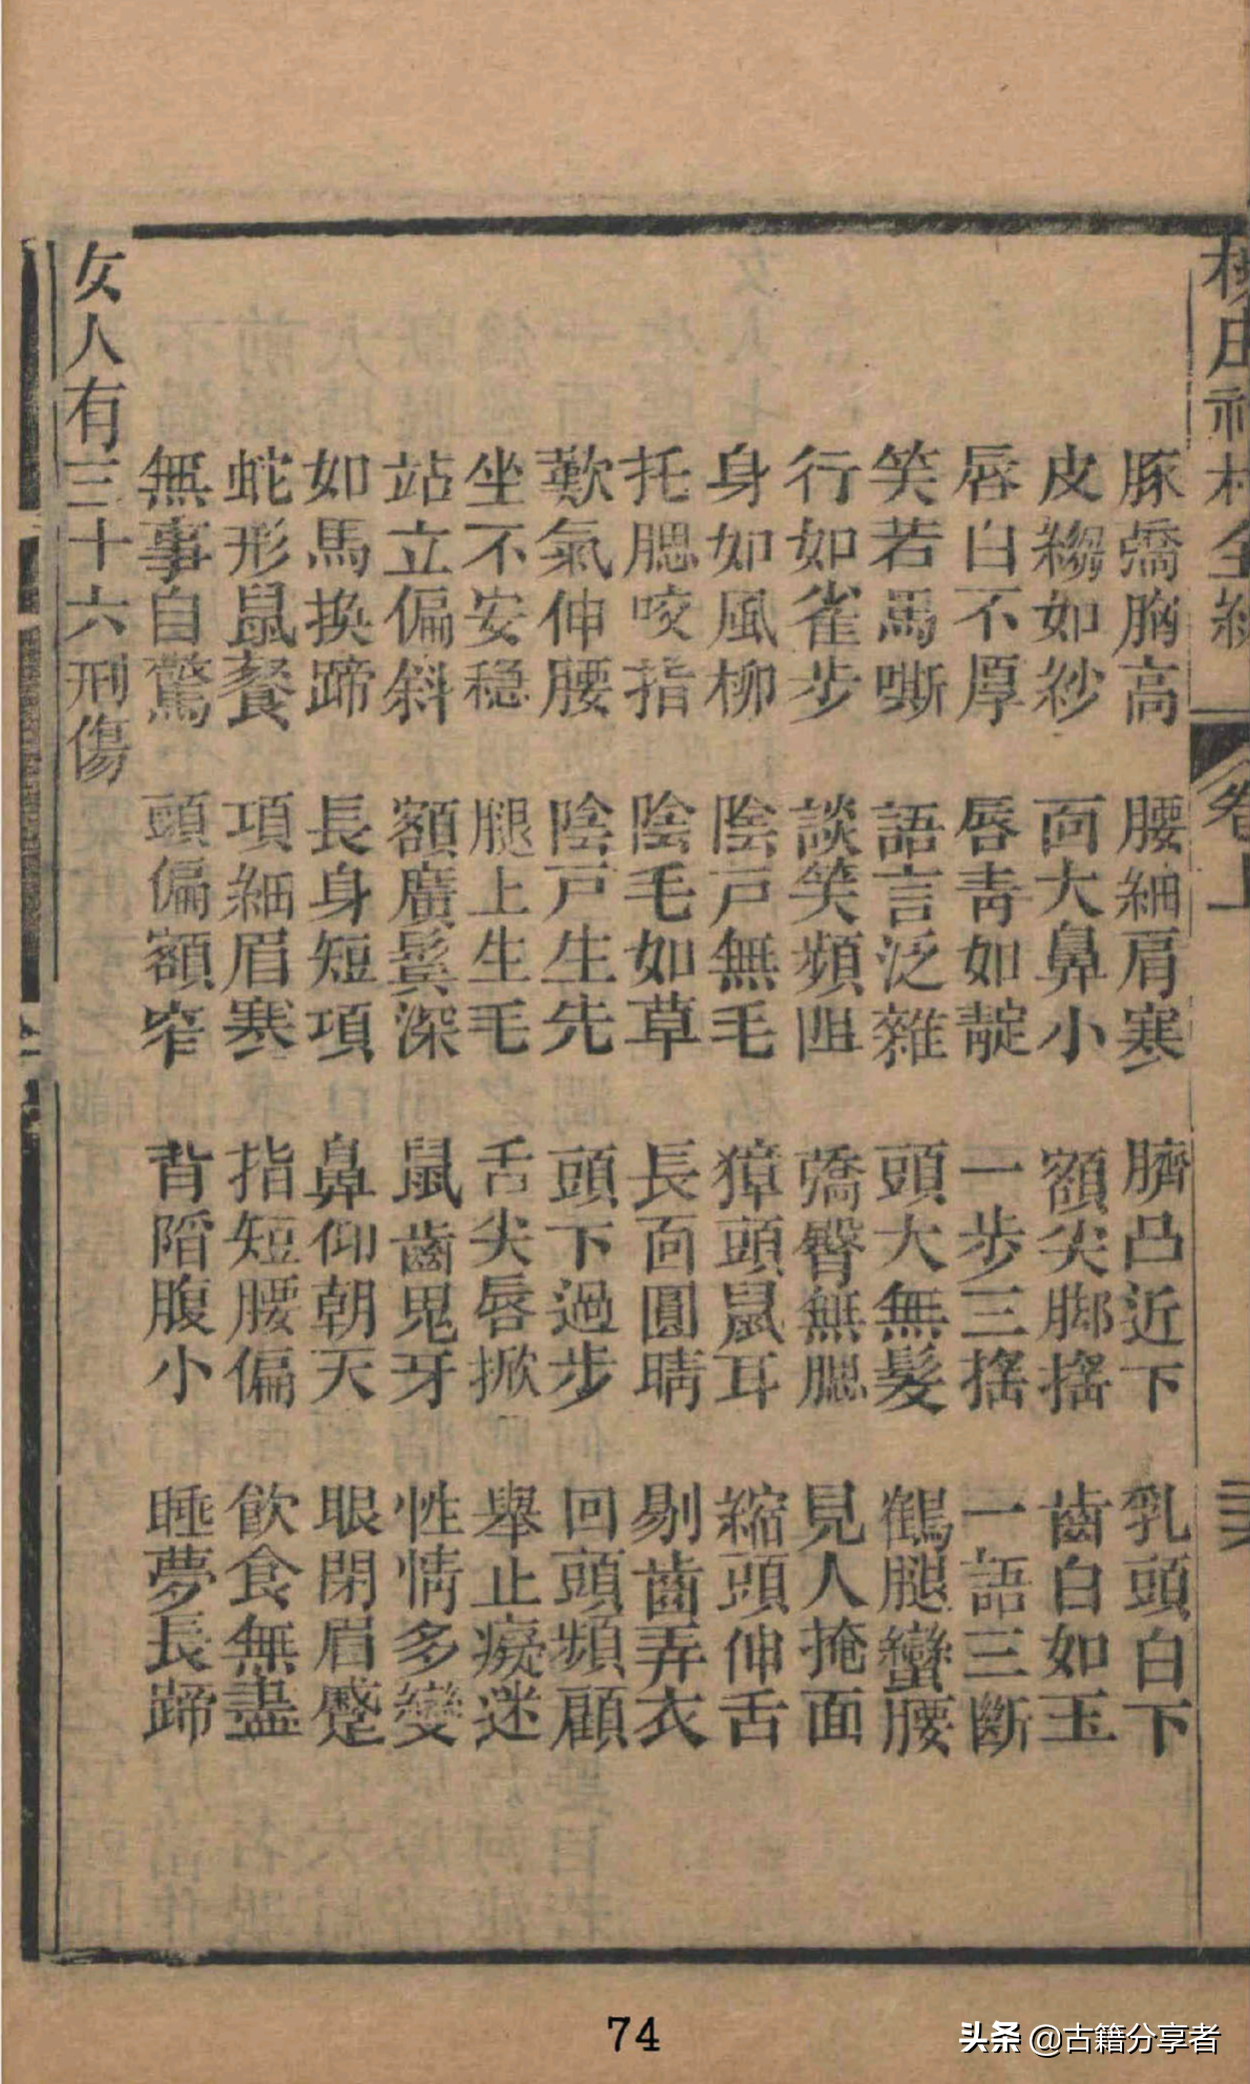 全編
卷上
豚喬胸高 腰細肩寒 臍凸近下 乳頭白下
皮縐如紗 面大鼻小 額尖脚搖 齒白如玉
唇白不厚 唇青如靛 一步三搖 一語三斷
笑若馬嘶 語言泛雜 頭大無髮 鶴腿蠻腰
行如雀步 談笑頻阻 臀無腮 見人掩面
身如風柳 陰戶無毛 獐頭鼠耳 縮頭伸舌
托腮咬指 陰毛如草 長面圓睛 剔齒弄衣
歎氣伸腰 陰戶生先 頭下過步 回頭頻顧
坐不安穩 腿上生毛 舌尖唇掀 舉止癡迷
站立偏斜 額廣鬓深 鼠齒鬼牙 性情多變
如馬換蹄 長身短項 鼻仰朝天 眼閉眉蹙
蛇形鼠餐 項細眉寒 指短腰偏 飲食無盡
無事自驚 頭偏額窄 背陷腹小 睡夢長蹄
女人有三十六刑傷
74
头条 @古籍分享者